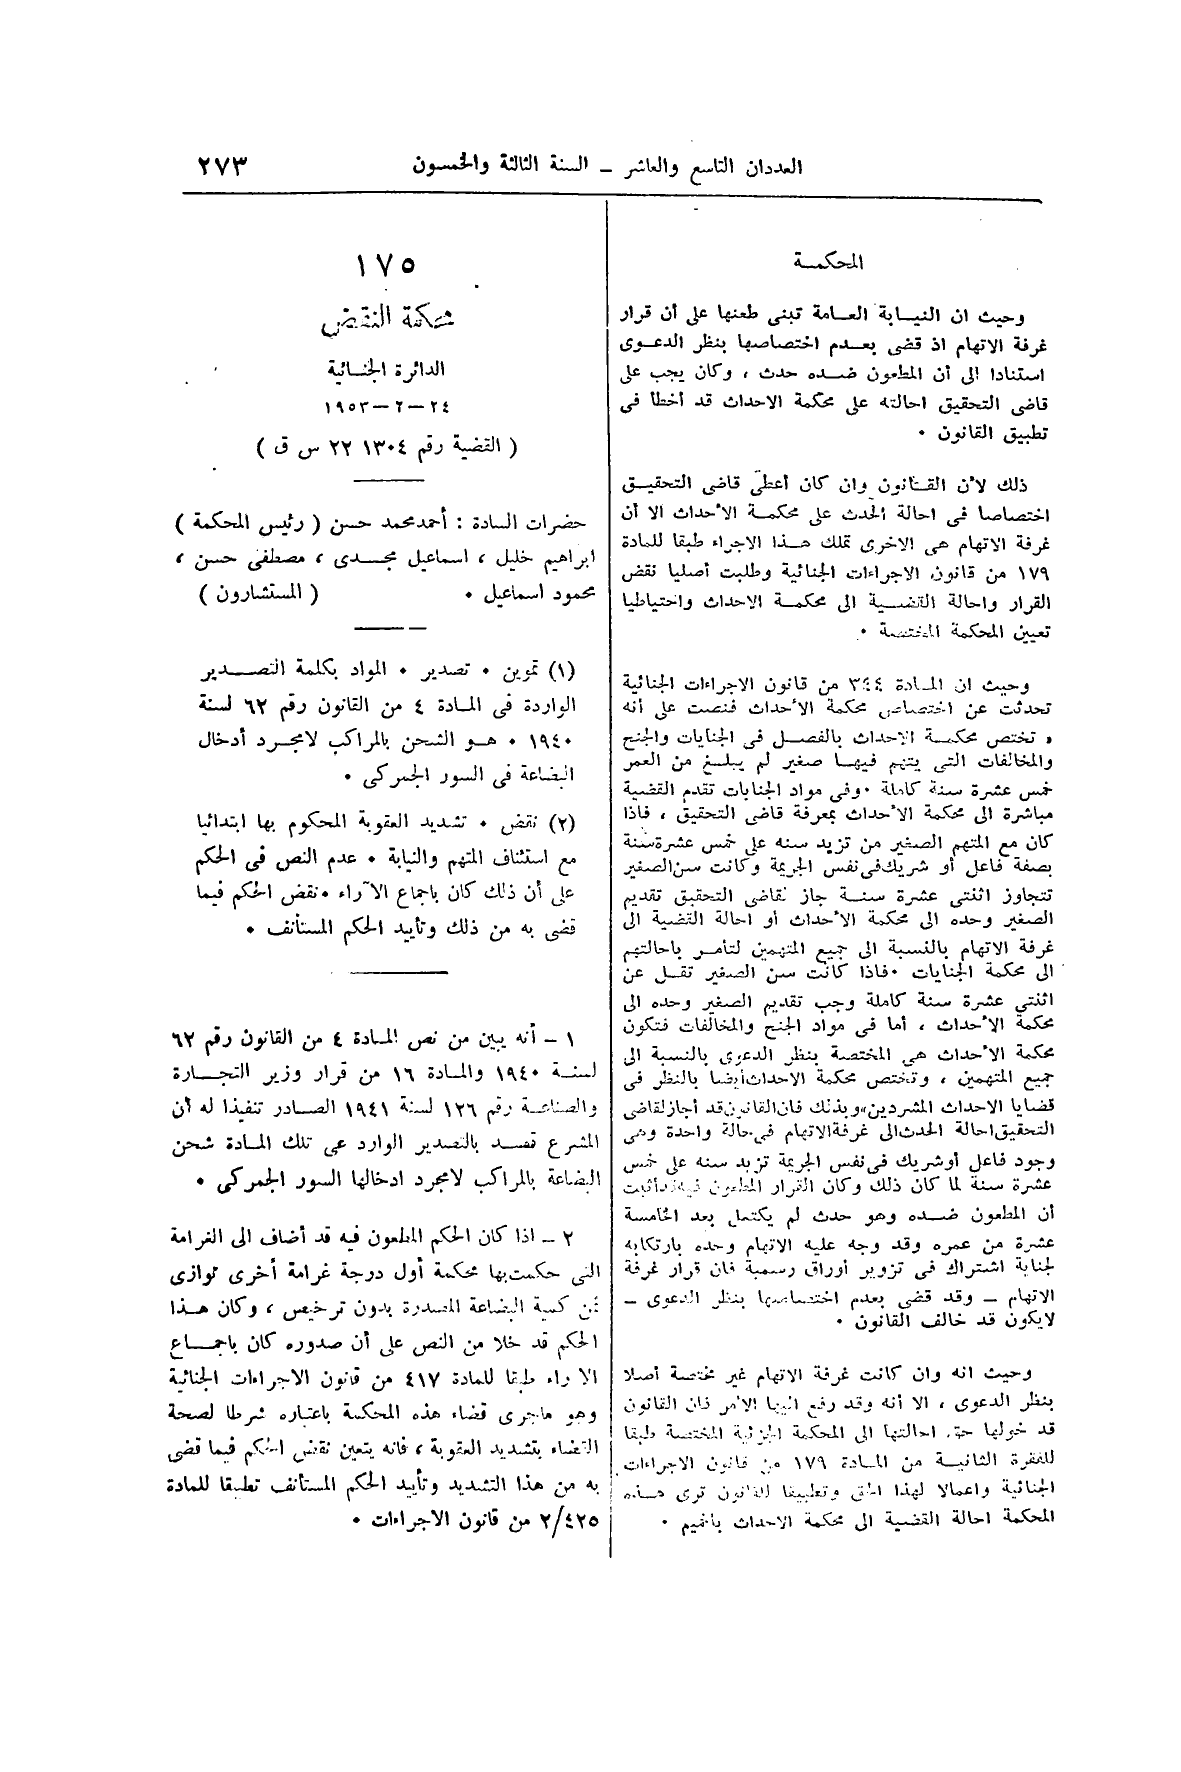 العددان التاسع والعاشر – السنة الثالثة والخمسون ٢٧٣
المحكمة
وحيث ان النيابة العامة تبنى طعنها على أن قرار
غرفة الاتهام اذ قضى بعدم اختصاصها بنظر الدعوى
استنادا الى أن المطعون ضده حدث ، وكان يجب على
قاضى التحقيق احالته على محكمة الاحداث قد أخطأ فى
تطبيق القانون ٠
ذلك لأن القانون وان كان أعطى قاضى التحقيق
اختصاصا فى احالة الحدث على محكمة الأحداث الا أن
غرفة الاتهام هى الاخرى تملك هذا الاجراء طبقا للمادة
١٧٩ من قانون الاجراءات الجنائية وطلبت أصليا نقض
القرار واحالة القضية الى محكمة الاحداث واحتياطيا
تعيين المحكمة المختصة ٠
وحيث ان المادة ٣٤٤ من قانون الاجراءات الجنائية
تحدثت عن اختصاص محكمة الأحداث فنصت على أنه
« تختص محكمة الاحداث بالفصل فى الجنايات والجنح
والمخالفات التى يتهم فيها صغير لم يبلغ من العمر
خمس عشرة سنة كاملة ٠ وفى مواد الجنايات تقدم القضية
مباشرة الى محكمة الأحداث بمعرفة قاضى التحقيق ، فاذا
كان مع المتهم الصغير من تزيد سنه على خمس عشرة سنة
بصفة فاعل أو شريك فى نفس الجريمة وكانت سن الصغير
تتجاوز اثنتى عشرة سنة جاز لقاضى التحقيق تقديم
الصغير وحده الى محكمة الأحداث أو احالة القضية الى
غرفة الاتهام بالنسبة الى جميع المتهمين لتأمر باحالتهم
الى محكمة الجنايات ٠ فاذا كانت سن الصغير تقل عن
اثنتى عشرة سنة كاملة وجب تقديم الصغير وحده الى
محكمة الأحداث ، أما فى مواد الجنح والمخالفات فتكون
محكمة الأحداث هى المختصة بنظر الدعوى بالنسبة الى
جميع المتهمين ، وتختص محكمة الاحداث أيضا بالنظر فى
قضايا الاحداث المشردين» وبذلك فان القانون قد أجاز لقاضى
التحقيق احالة الحدث الى غرفة الاتهام فى حالة واحدة وهى
وجود فاعل أو شريك فى نفس الجريمة تزيد سنه على خمس
عشرة سنة لما كان ذلك وكان القرار المطعون فيه قد أثبت
أن المطعون ضده وهو حدث لم يكتمل بعد الخامسة
عشرة من عمره وقد وجه عليه الاتهام وحده بارتكابه
لجناية اشتراك فى تزوير أوراق رسمية فان قرار غرفة
الاتهام – وقد قضى بعدم اختصاصها بنظر الدعوى –
لا يكون قد خالف القانون ٠
وحيث انه وان كانت غرفة الاتهام غير مختصة أصلا
بنظر الدعوى ، الا أنه وقد رفع اليها الأمر فان القانون
قد خولها حق احالتها الى المحكمة الجزئية المختصة طبقا
للفقرة الثانية من المادة ١٧٩ من قانون الاجراءات
الجنائية واعمالا لهذا الحق وتطبيقا للقانون ترى هذه
المحكمة احالة القضية الى محكمة الاحداث بالفيوم ٠
١٧٥
محكمة النقض
الدائرة الجنائية
٢٤–٢–١٩٥٣
( القضية رقم ١٣٠٤ ٢٢ س ق )
حضرات السادة : أحمد محمد حسن ( رئيس المحكمة )
ابراهيم خليل ، اسماعيل مجدى ، مصطفى حسن ،
محمود اسماعيل ٠ ( المستشارون )
(١) تموين ٠ تصدير ٠ المواد بكلمة التصدير
الواردة فى المادة ٤ من القانون رقم ٦٢ لسنة
١٩٤٠ ٠ هو الشحن بالمراكب لا مجرد أدخال
البضاعة فى السور الجمركى ٠
(٢) نقض ٠ تشديد العقوبة المحكوم بها ابتدائيا
مع استئناف المتهم والنيابة ٠ عدم النص فى الحكم
على أن ذلك كان باجماع الآراء ٠ نقض الحكم فيما
قضى به من ذلك وتأييد الحكم المستأنف ٠
١ – أنه يبين من نص المادة ٤ من القانون رقم ٦٢
لسنة ١٩٤٠ والمادة ١٦ من قرار وزير التجارة
والصناعة رقم ١٢٦ لسنة ١٩٤١ الصادر تنفيذا له أن
المشرع قصد بالتصدير الوارد عى تلك المادة شحن
البضاعة بالمراكب لا مجرد ادخالها السور الجمركى ٠
٢ – اذا كان الحكم المطعون فيه قد أضاف الى الغرامة
التى حكمت بها محكمة أول درجة غرامة أخرى توازى
ثمن كمية البضاعة المصدرة بدون ترخيص ، وكان هذا
الحكم قد خلا من النص على أن صدوره كان باجماع
الاراء طبقا للمادة ٤١٧ من قانون الاجراءات الجنائية
وهو ماجرى قضاء هذه المحكمة باعتباره شرطا لصحة
القضاء بتشديد العقوبة ، فانه يتعين نقض الحكم فيما قضى
به من هذا التشديد وتأييد الحكم المستأنف تطبيقا للمادة
٢/٤٢٥ من قانون الاجراءات ٠